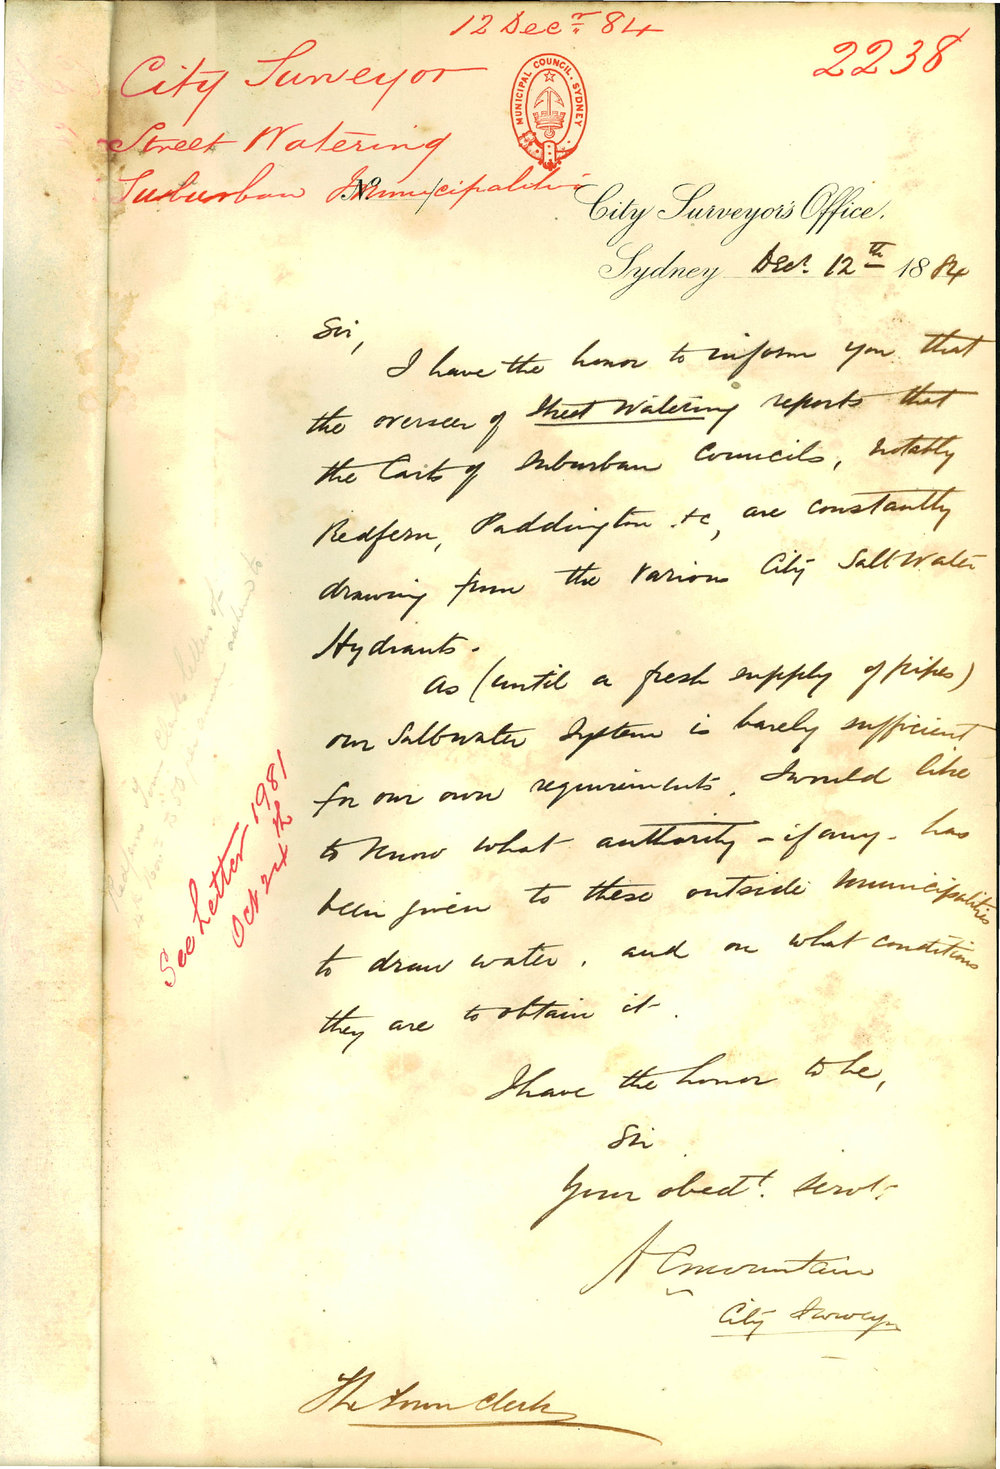 12 Decr. 84
2238
City Surveyor
Street Watering
Suburban Municipalities
MUNICIPAL COUNCIL. SYDNEY
No.
City Surveyor's Office,
Sydney Dec. 12th 1884
Sir,
I have the honor to inform you that
the overseer of Street Watering reports that
the Carts of Suburban Councils, notably
Redfern, Paddington &c, are constantly
drawing from the various City Salt Water
Hydrants.
As (until a fresh supply of pipes)
our Saltwater System is barely sufficient
for our own requirements, I would like
to know what authority - if any - has
been given to these outside Municipalities
to draw water, and on what conditions
they are to obtain it.
I have the honor to be,
Sir
Your obedt. Servt.
A C Mountain
City Surveyor
The Town Clerk
See Letter 1981
Oct 24th